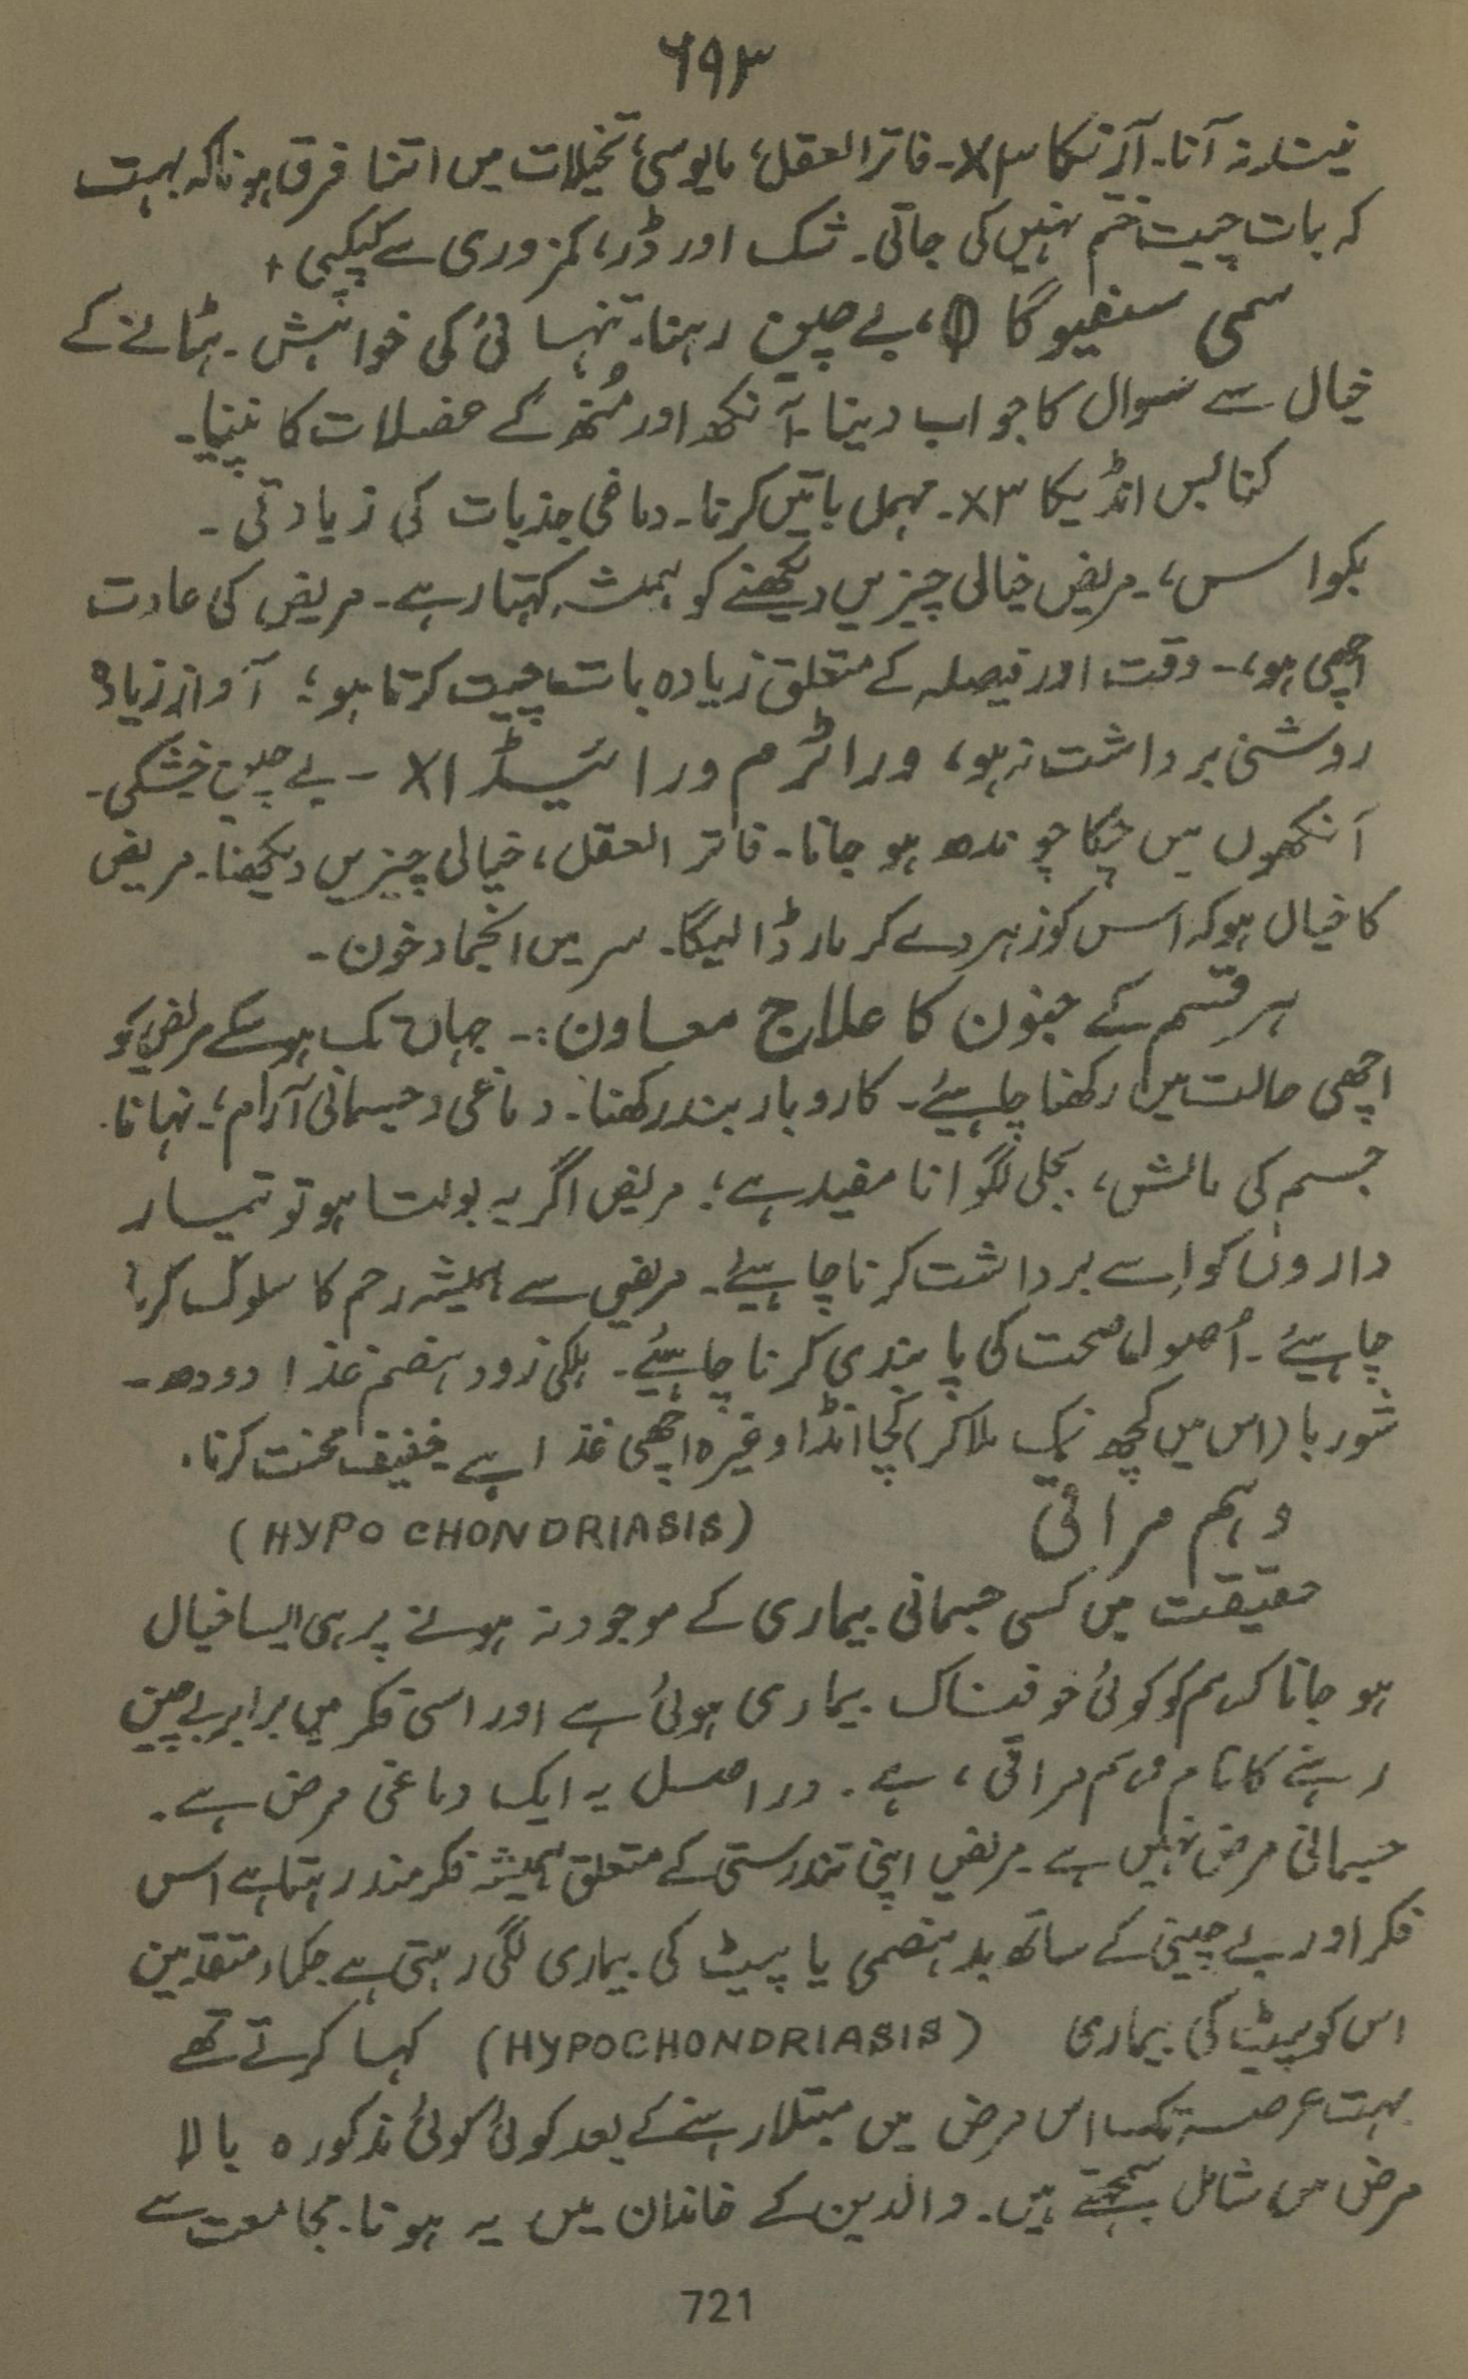 ۶۹۳
نیند نہ آنا۔ آرنیکا ۳X۔ فاتر العقل، مایوسی، تخیلات میں اتنا فرق ہونا کہ بہت
کہ بات چیت ختم نہیں کی جاتی۔ شک اور ڈر، کمزوری سے کپکپی +
سمی سفیوگا ①، بے چین رہنا۔ تنہائی کی خواہش۔ ہٹانے کے
خیال سے سوال کا جواب دینا۔ آنکھ اور مُنھ کے عضلات کا تننا۔
کنابس انڈیکا ۳X۔ مہمل باتیں کرنا۔ دماغی جذبات کی زیادتی۔
بکواس، مریض خیالی چیزیں دیکھنے کو ہمیشہ کہتا رہے۔ مریض کی عادت
اچھی ہو،۔ وقت اور فیصلہ کے متعلق زیادہ بات چیت کرتا ہو؛ آواز زیادہ
روشنی برداشت نہ ہو، وراٹرم ورائیڈ ۱X – بے چین خشکی۔
آنکھوں میں چکا چوندھ ہو جانا۔ فاتر العقل، خیالی چیزیں دیکھنا۔ مریض
کا خیال ہو کہ اس کو زہر دے کر مار ڈالیگا۔ سر میں انجماد خون۔
ہر قسم کے جنون کا علاج معاون:۔ جہاں تک ہوسکے مریض کو
اچھی حالت میں رکھنا چاہیئے۔ کاروبار بند رکھنا۔ دماغی و جسمانی آرام؛۔ نہانا۔
جسم کی مالش، بجلی لگوانا مفید ہے؛ مریض اگر یہ بولتا ہو تو تیمار
داروں کو اِسے برداشت کرنا چاہیئے۔ مریض سے ہمیشہ رحم کا سلوک کرنا
چاہیئے۔ اُصول صحت کی پابندی کرنا چاہیئے۔ ہلکی زود ہضم غذا دودھ۔
شوربا (اس میں کچھ نمک ملا کر) کچا انڈا وغیرہ اچھی غذا ہے خفیف محنت کرنا۔
وہم مراقی (HYPO CHONDRIASIS)
حقیقت میں کسی جسمانی بیماری کے موجود نہ ہونے پر ہی ایسا خیال
ہو جانا کہ ہم کو کوئی خوفناک بیماری ہوئی ہے اور اسی فکر میں برابر بے چین
رہنے کا نام وہم مراقی، ہے۔ دراصل یہ ایک دماغی مرض ہے۔
جسمانی مرض نہیں ہے۔ مریض اپنی تندرستی کے متعلق ہمیشہ فکر مند رہتا ہے اس
فکر اور بے چینی کے ساتھ بدہضمی یا پیٹ کی بیماری لگی رہتی ہے حکماء متقدمین
اس کو پیٹ کی بیماری (HYPOCHONDRIASIS) کہا کرتے تھے
بہت عرصہ تک اس مرض میں مبتلا رہنے کے بعد کوئی کوئی مذکورہ بالا
مرض میں شامل سمجھتے ہیں۔ والدین کے خاندان میں یہ ہونا۔ مجامعت سے
721